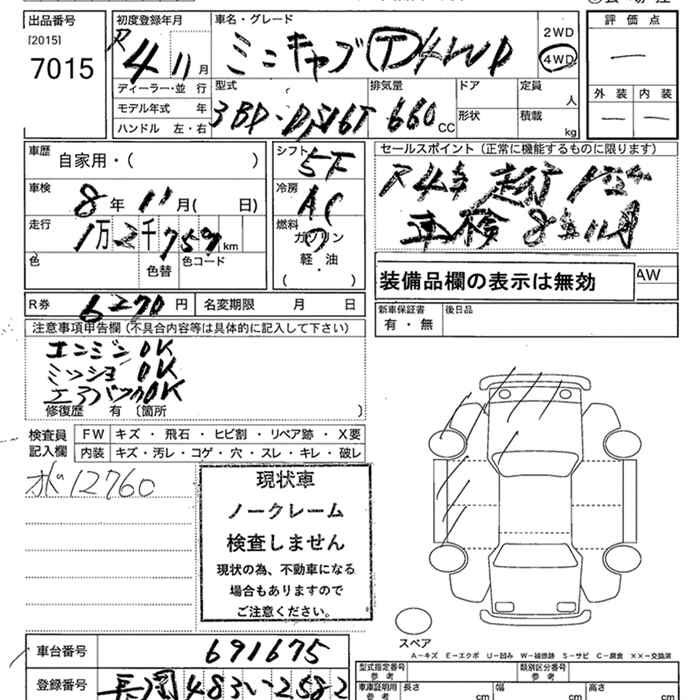 出品番号
[2015]
7015
初度登録年月
R 4 11 月
車名・グレード
ミニキャブ T 4WD
2WD
4WD
評価点
ー
外装 内装
ー ー
ディーラー・並行
モデル年式 年
ハンドル 左・右
型式
3BD-DS16T
排気量
660 CC
ドア
形状
定員
人
積載
kg
車歴 自家用・( )
シフト 5F
セールスポイント (正常に機能するものに限ります)
R4年 走行
車検 8年11月
車検 8 年 11 月( 日)
冷房 AC
走行 1万2千759 km
燃料
ガソリン
軽・油
( ・ )
色
色替
色コード
装備品欄の表示は無効
AW
R券 6270 円
名変期限 月 日
新車保証書
有・無
後日品
注意事項申告欄(不具合内容等は具体的に記入して下さい)
エンジンOK
ミッションOK
エアバックOK
修復歴 有 〔箇所 〕
検査員
記入欄
FW キズ・飛石・ヒビ割・リペア跡・X要
内装 キズ・汚レ・コゲ・穴・スレ・キレ・破レ
ボ12760
現状車
ノークレーム
検査しません
現状の為、不動車になる
場合もありますので
ご注意ください。
スペア
A−キズ E−エクボ U−凹み W−補修跡 S−サビ C−腐食 ××−交換済
車台番号 691675
登録番号 長岡 483 い 2582
型式指定番号
参考
類別区分番号
参考
車庫証明用
参考
長さ cm
幅 cm
高さ cm